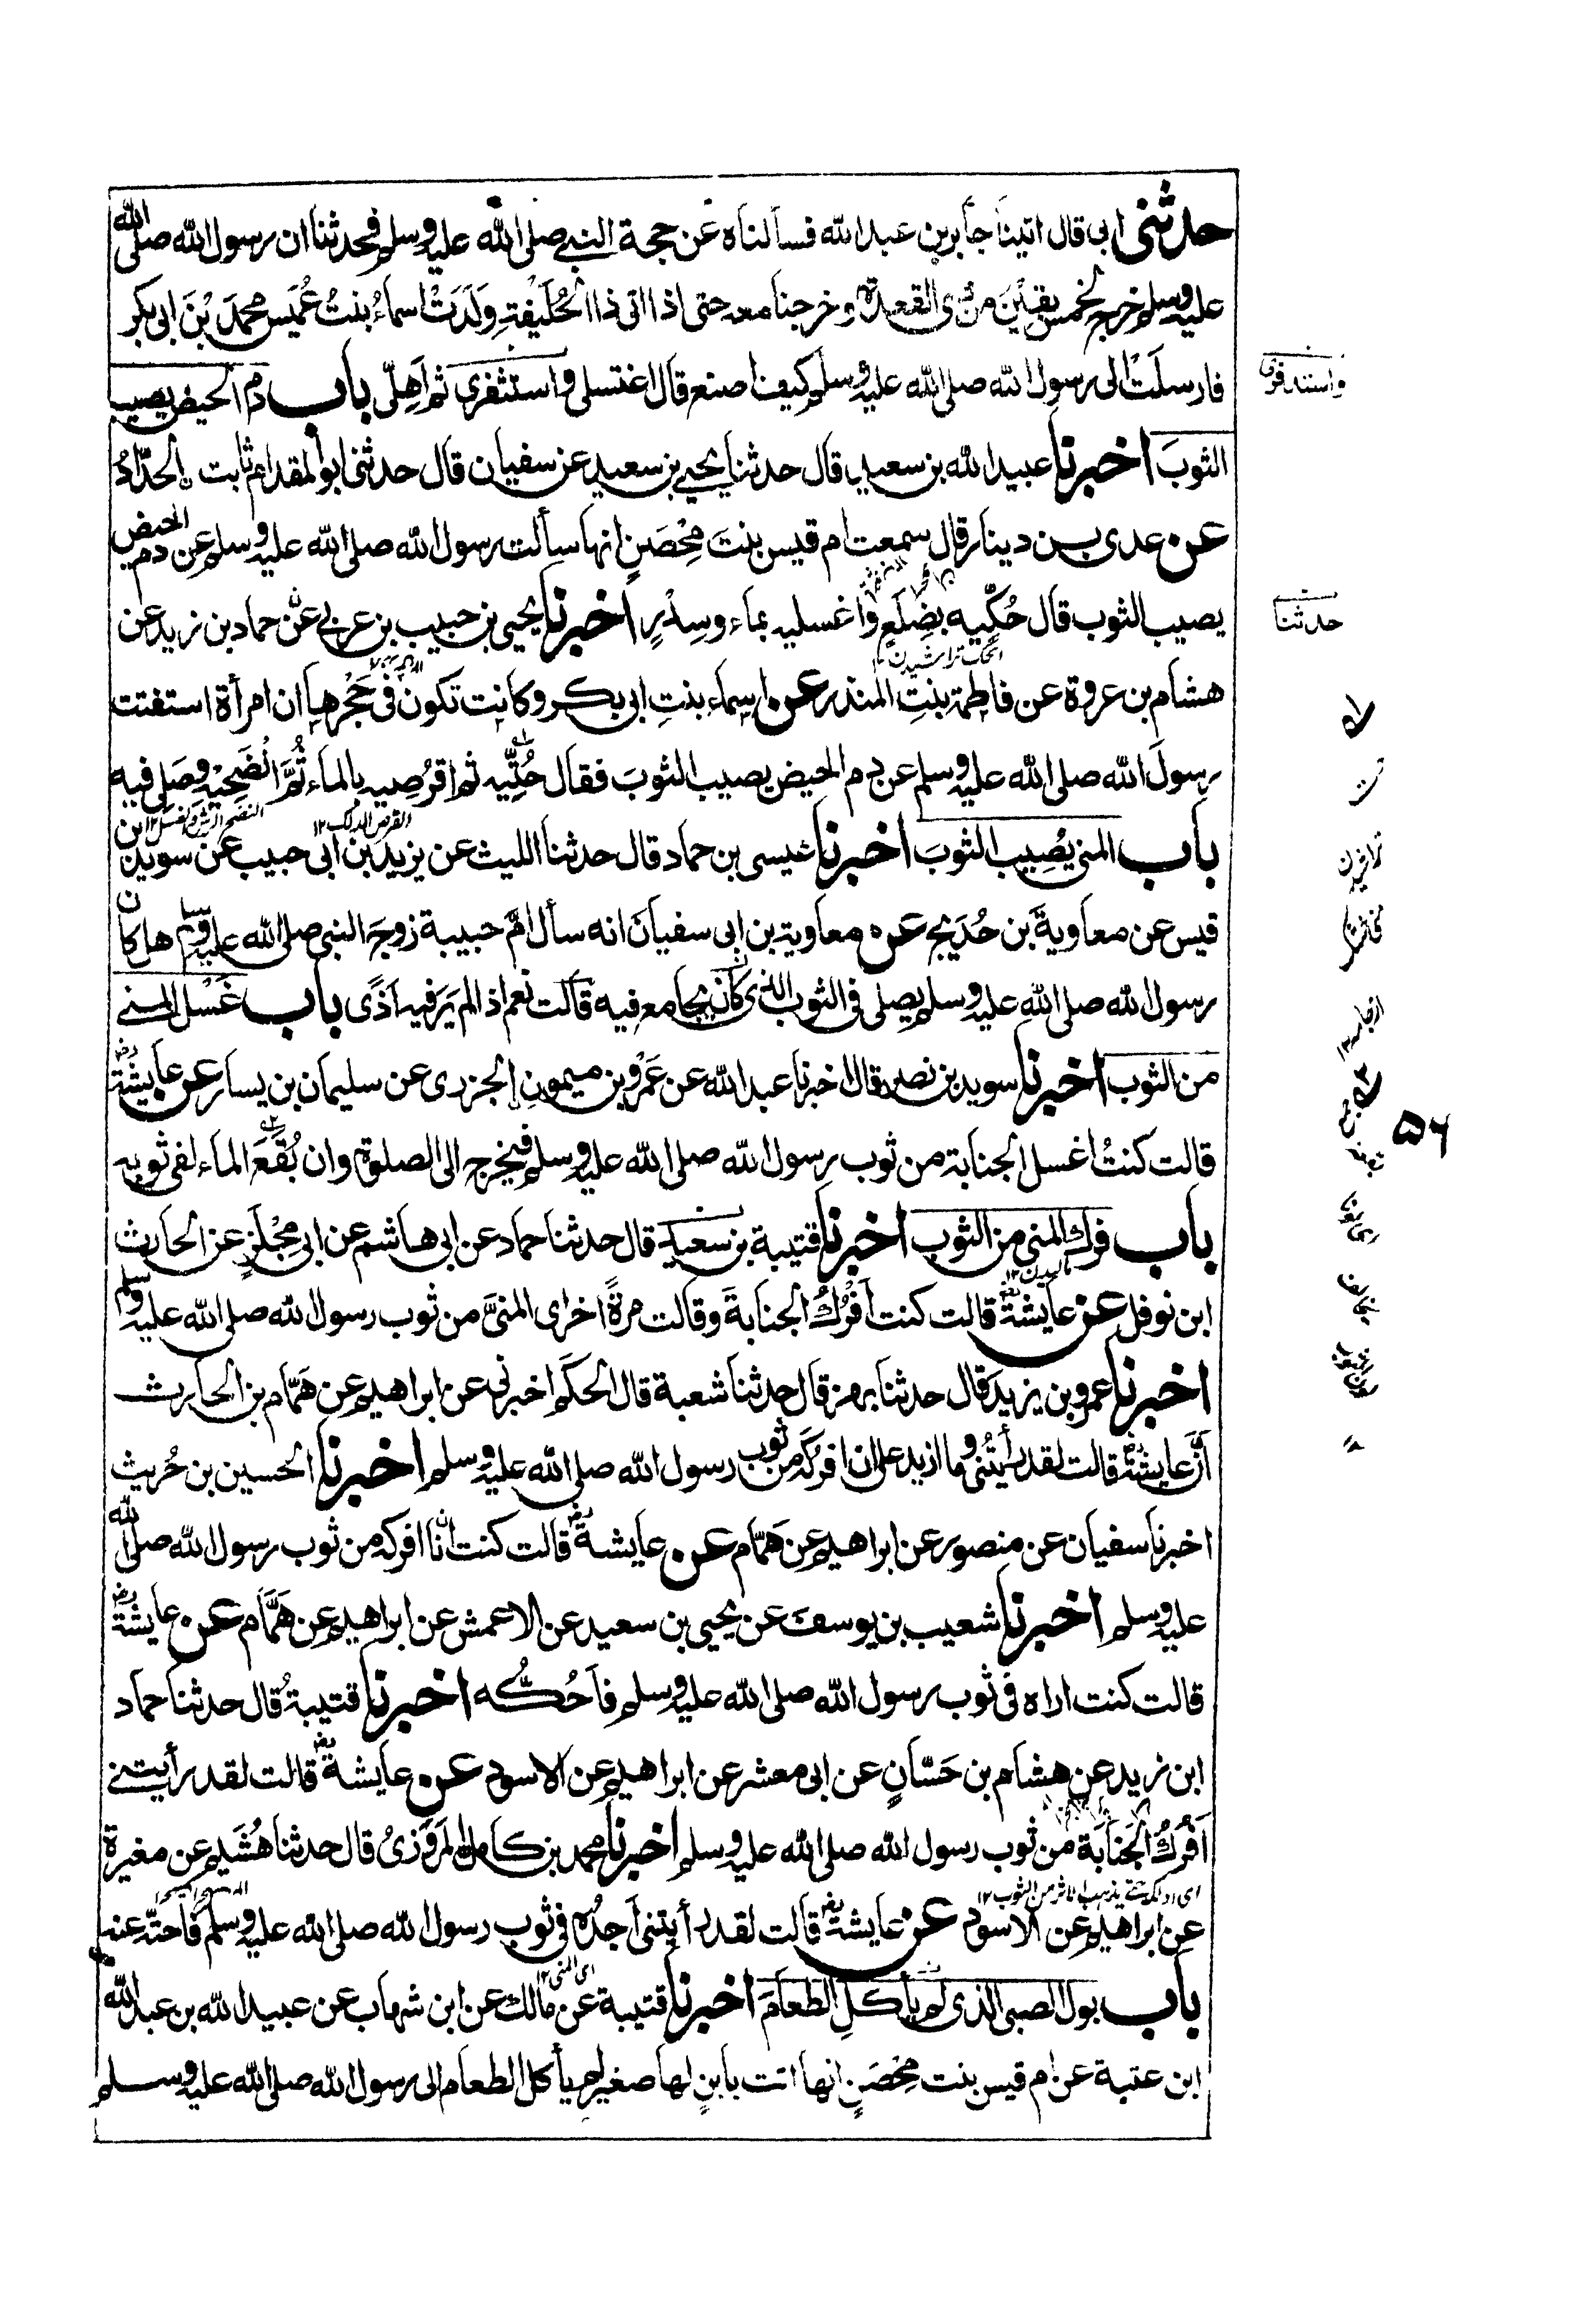 حدثنی ابی قال اتینا جابر بن عبد الله فسألناه عن حجة النبے صلی الله علیه وسلم فحدثنا ان رسول الله صلی الله
علیه وسلم خرج لخمس بقین من ذی القعدة وخرجنا معه حتی اذا اتی ذا الحُلَیْفَةِ وَلَدَتْ اسماءُ بنتُ عُمَیس محمدَ بْنَ ابی بکر
فارسلَتْ الی رسول الله صلی الله علیه وسلم کیف اصنع قال اغتسلی واستثفری ثم اَهِلّی باب دم الحیض یصیب
واستذفری
الثوبَ اخبرنا عبید الله بن سعید قال حدثنا یحیے بن سعید عن سفیان قال حدثنی ابو المقدام ثابت الحدّادُ
عن عدی بن دینار قال سمعت ام قیس بنتَ مِحْصَنٍ انها سألت رسول الله صلی الله علیه وسلم عن دم الحیض
یصیب الثوب قال حُکِّیه بضِلَعٍ واغسلیه بماء وسِدْرٍ اخبرنا یحیی بن حبیب بن عربی عن حماد بن زید عن
حدثنا
الحک تراشیدن
هشام بن عروة عن فاطمة بنتِ المنذر عن اسماء بنتِ ابی بکر وکانت تکون فی حَجْرِها ان امرأة استفتت
رسولَ الله صلی الله علیه وسلم عن دم الحیض یصیب الثوبَ فقال حُتِّیه ثم اقرُصیه بالماء ثُمَّ انْضَحِیْهِ وصَلِی فیه
القرص الدلک ١٢
باب المنی یُصِیب الثوبَ اخبرنا عیسی بن حماد قال حدثنا اللیث عن یزید بن ابی حبیب عن سوید بن
قیس عن معاویةَ بن حُدَیج عن معاویة بن ابی سفیانَ انه سأل امَّ حبیبة زوجَ النبی صلی الله علیه وسلم هل کان
رسول الله صلی الله علیه وسلم یصلی فی الثوب الذی کان یجامع فیه قالت نعم اذا لم یَرَ فیه اَذًی باب غَسْل المنے
من الثوب اخبرنا سوید بن نصر قال اخبرنا عبد الله عن عَمْرو بن میمون الجزری عن سلیمان بن یسار عن عایشة رض
قالت کنتُ اغسل الجنابة من ثوب رسول الله صلی الله علیه وسلم فیخرج الی الصلوة وان بُقَعَ الماء لفی ثوبه
٥٦
باب فرك المنی من الثوب اخبرنا قتیبة بن سعید قال حدثنا حماد عن ابی هاشم عن ابی مِجْلَزٍ عن الحارث
مالیدن ١٢
ابن نوفل عن عایشة رض قالت کنت اَفْرُكُ الجنابةَ وقالت مرةً اخری المنیَّ من ثوب رسول الله صلی الله علیه وسلم
اخبرنا عمرو بن یزید قال حدثنا بهز قال حدثنا شعبة قال الحکَم اخبرنی عن ابراهیم عن همّام بن الحارث
اَنَّ عایشة رض قالت لقد رأیتُنی وما ازید علی ان افرُکَه من ثوب رسول الله صلی الله علیه وسلم اخبرنا الحسین بن حُریث
اخبرنا سفیان عن منصور عن ابراهیم عن همّام عن عایشة رض قالت کنت انا افرکه من ثوب رسول الله صلی الله
علیه وسلم اخبرنا شعیب بن یوسفَ عن یحیی بن سعید عن الاعمش عن ابراهیم عن همّام عن عایشة رض
قالت کنت اراه فی ثوب رسول الله صلی الله علیه وسلم فاَحُکُّه اخبرنا قتیبةُ قال حدثنا حماد
ابن زید عن هشام بن حَسّانٍ عن ابی معشر عن ابراهیم عن الاسود عن عایشة رض قالت لقد رأیتنے
اَفْرُكُ الجَنابَة من ثوب رسول الله صلی الله علیه وسلم اخبرنا محمد بن کامل المَرْوَزیُ قال حدثنا هُشَیم عن مغیرة
ای ادلکه حتے یذهب الاثر من الثوب ١٢
عن ابراهیم عن الاسود عن عایشة رض قالت لقد رأیتنی اَجدُه فی ثوب رسول الله صلی الله علیه وسلم فاَحتّه عنه
ای المنی ١٢
باب بول الصبی الذی لم یأکلِ الطعامَ اخبرنا قتیبة عن مالك عن ابن شهاب عن عبید الله بن عبد الله
ابن عتبة عن ام قیس بنت مِحْصَنٍ انها اتت بابنٍ لها صغیر لم یأکل الطعام الی رسول الله صلی الله علیه وسلم